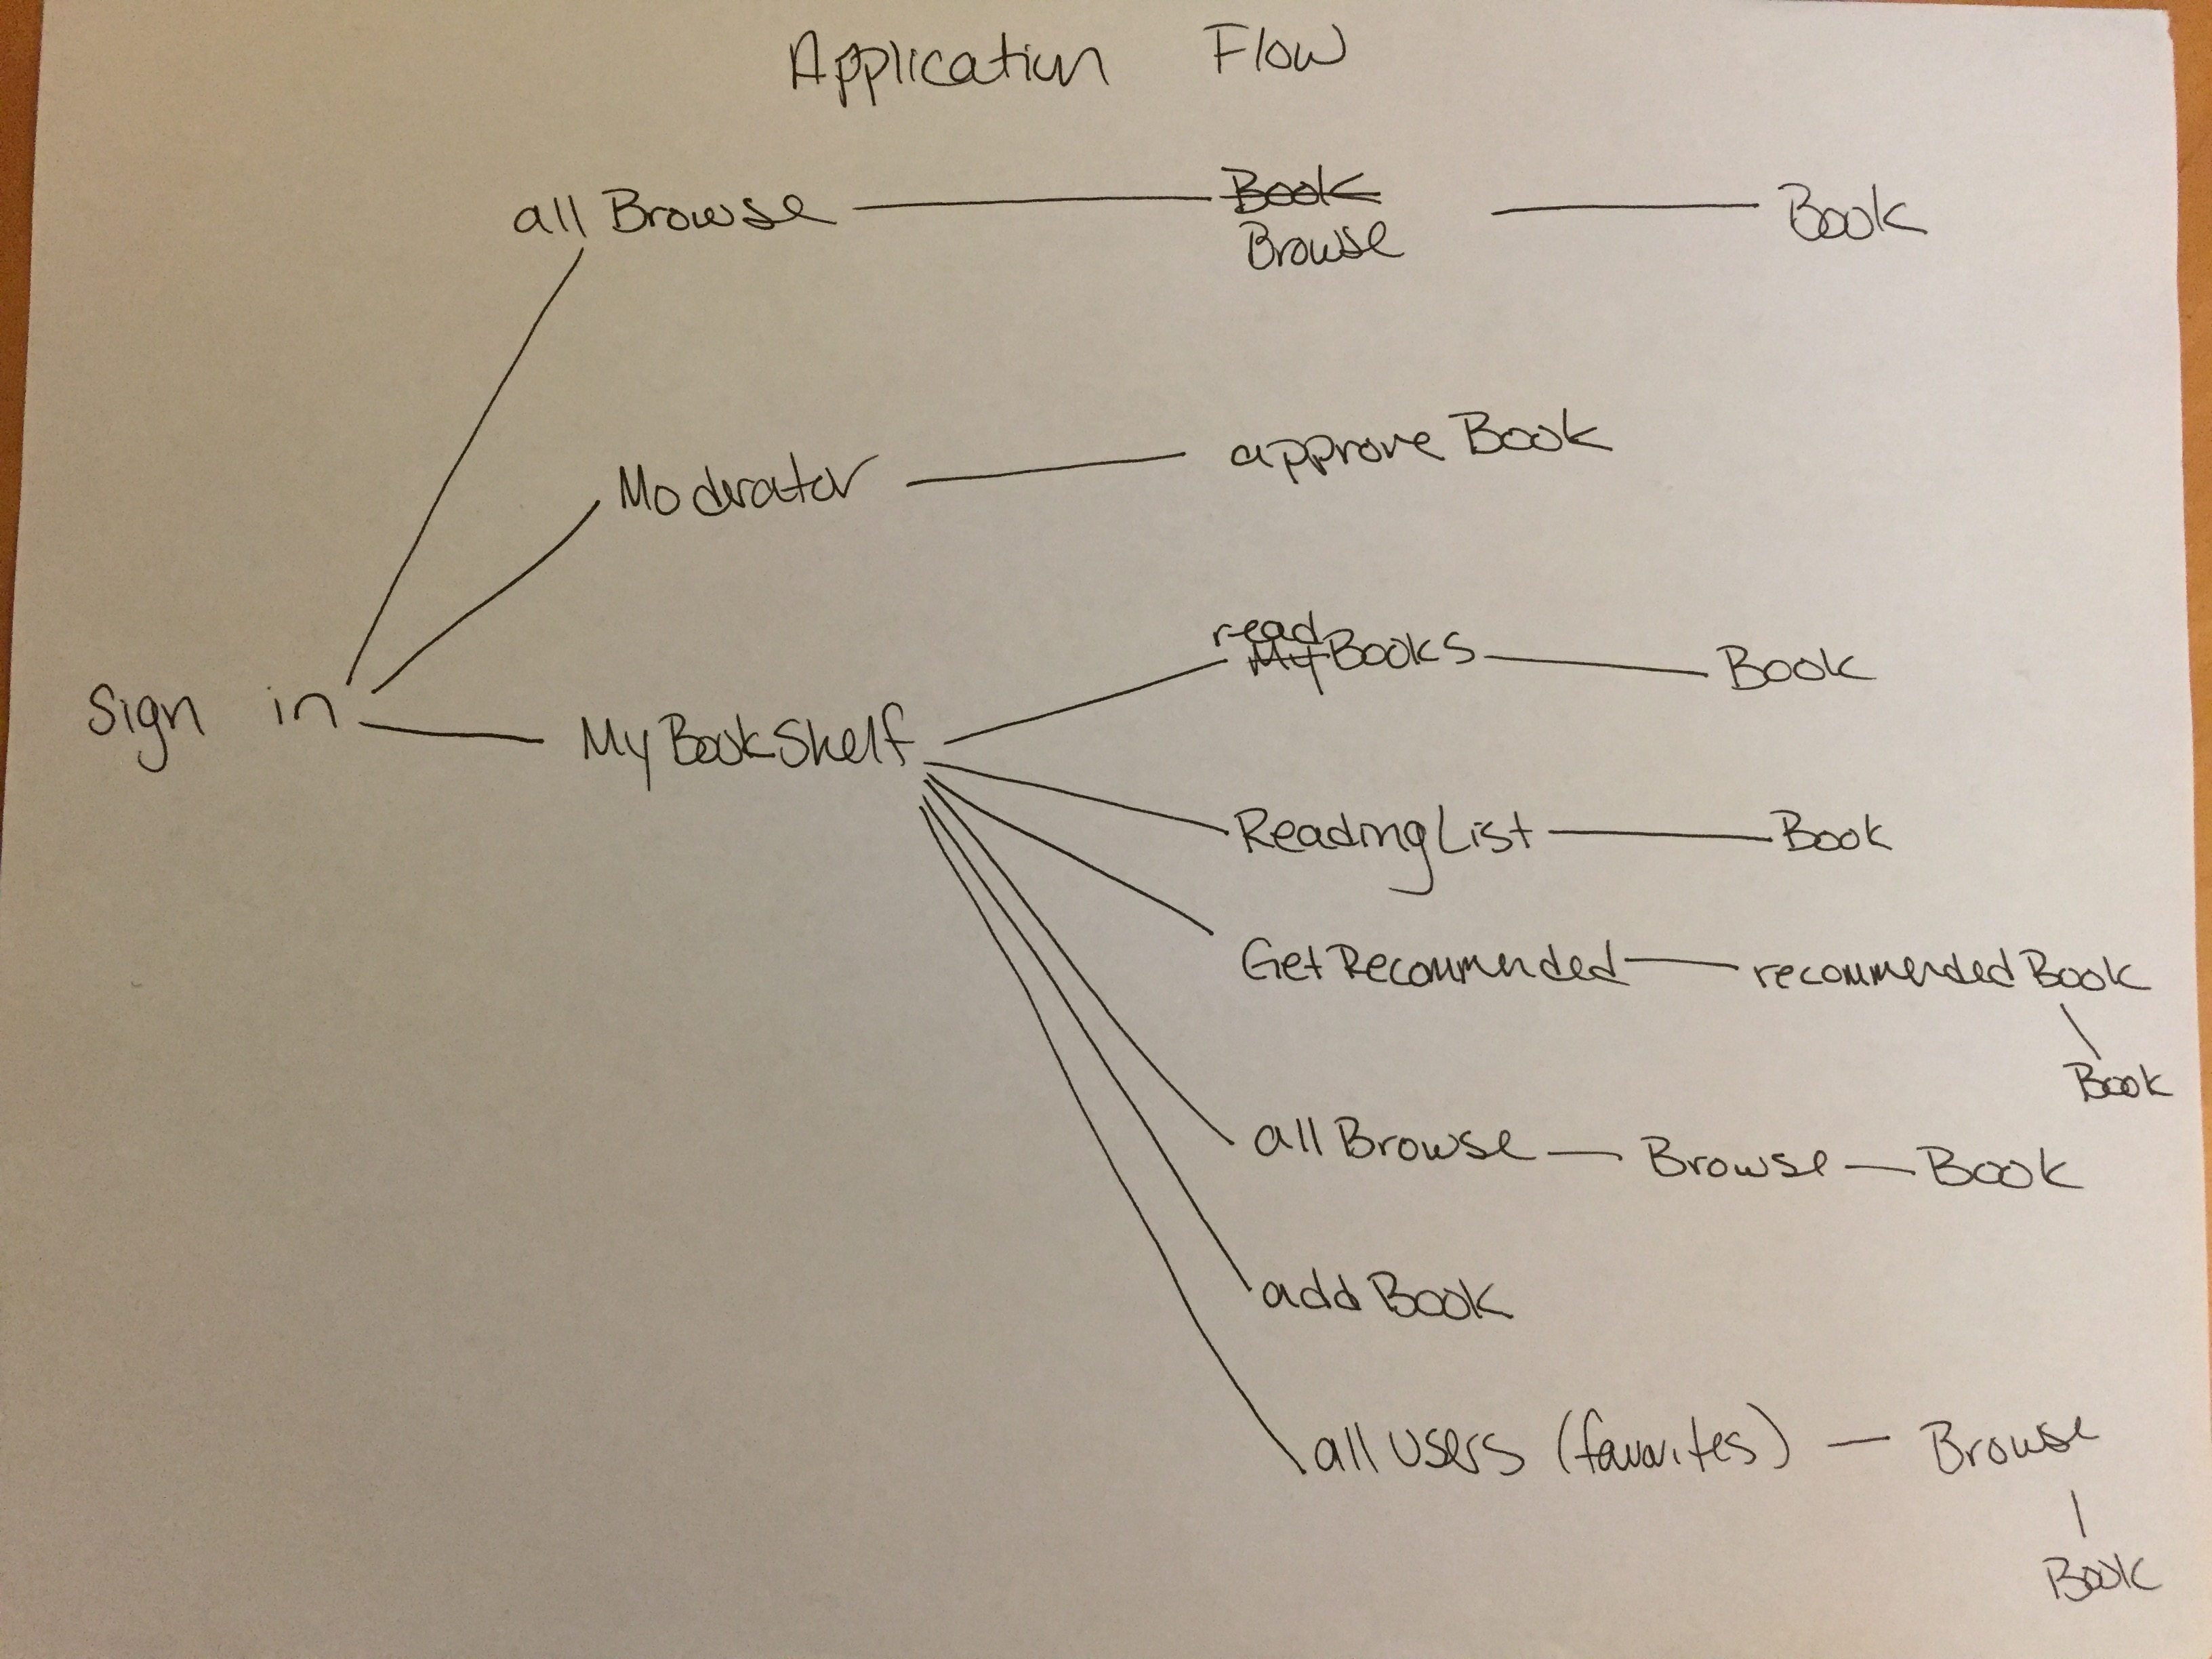 Application Flow
all Browse
Book
Browse
Book
Moderator
approve Book
Sign in
MyBookShelf
read
My Books
Book
ReadingList
Book
GetRecommended
recommendedBook
Book
all Browse
Browse
Book
add Book
all users (favorites)
Browse
Book